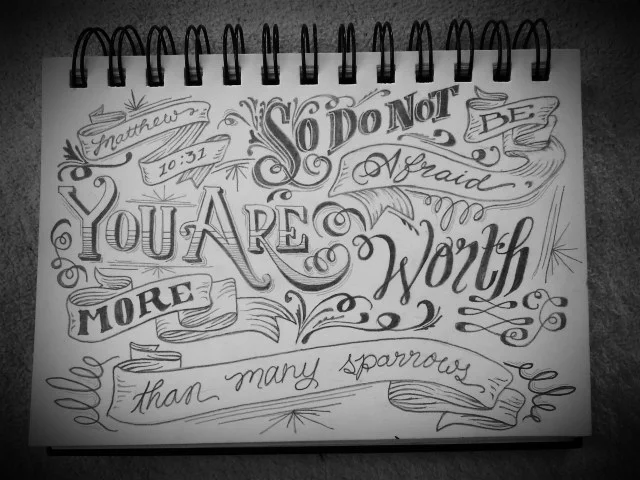 Matthew
10:31
SO DO NOT BE
Afraid
YOU ARE
Worth
MORE
than many sparrows